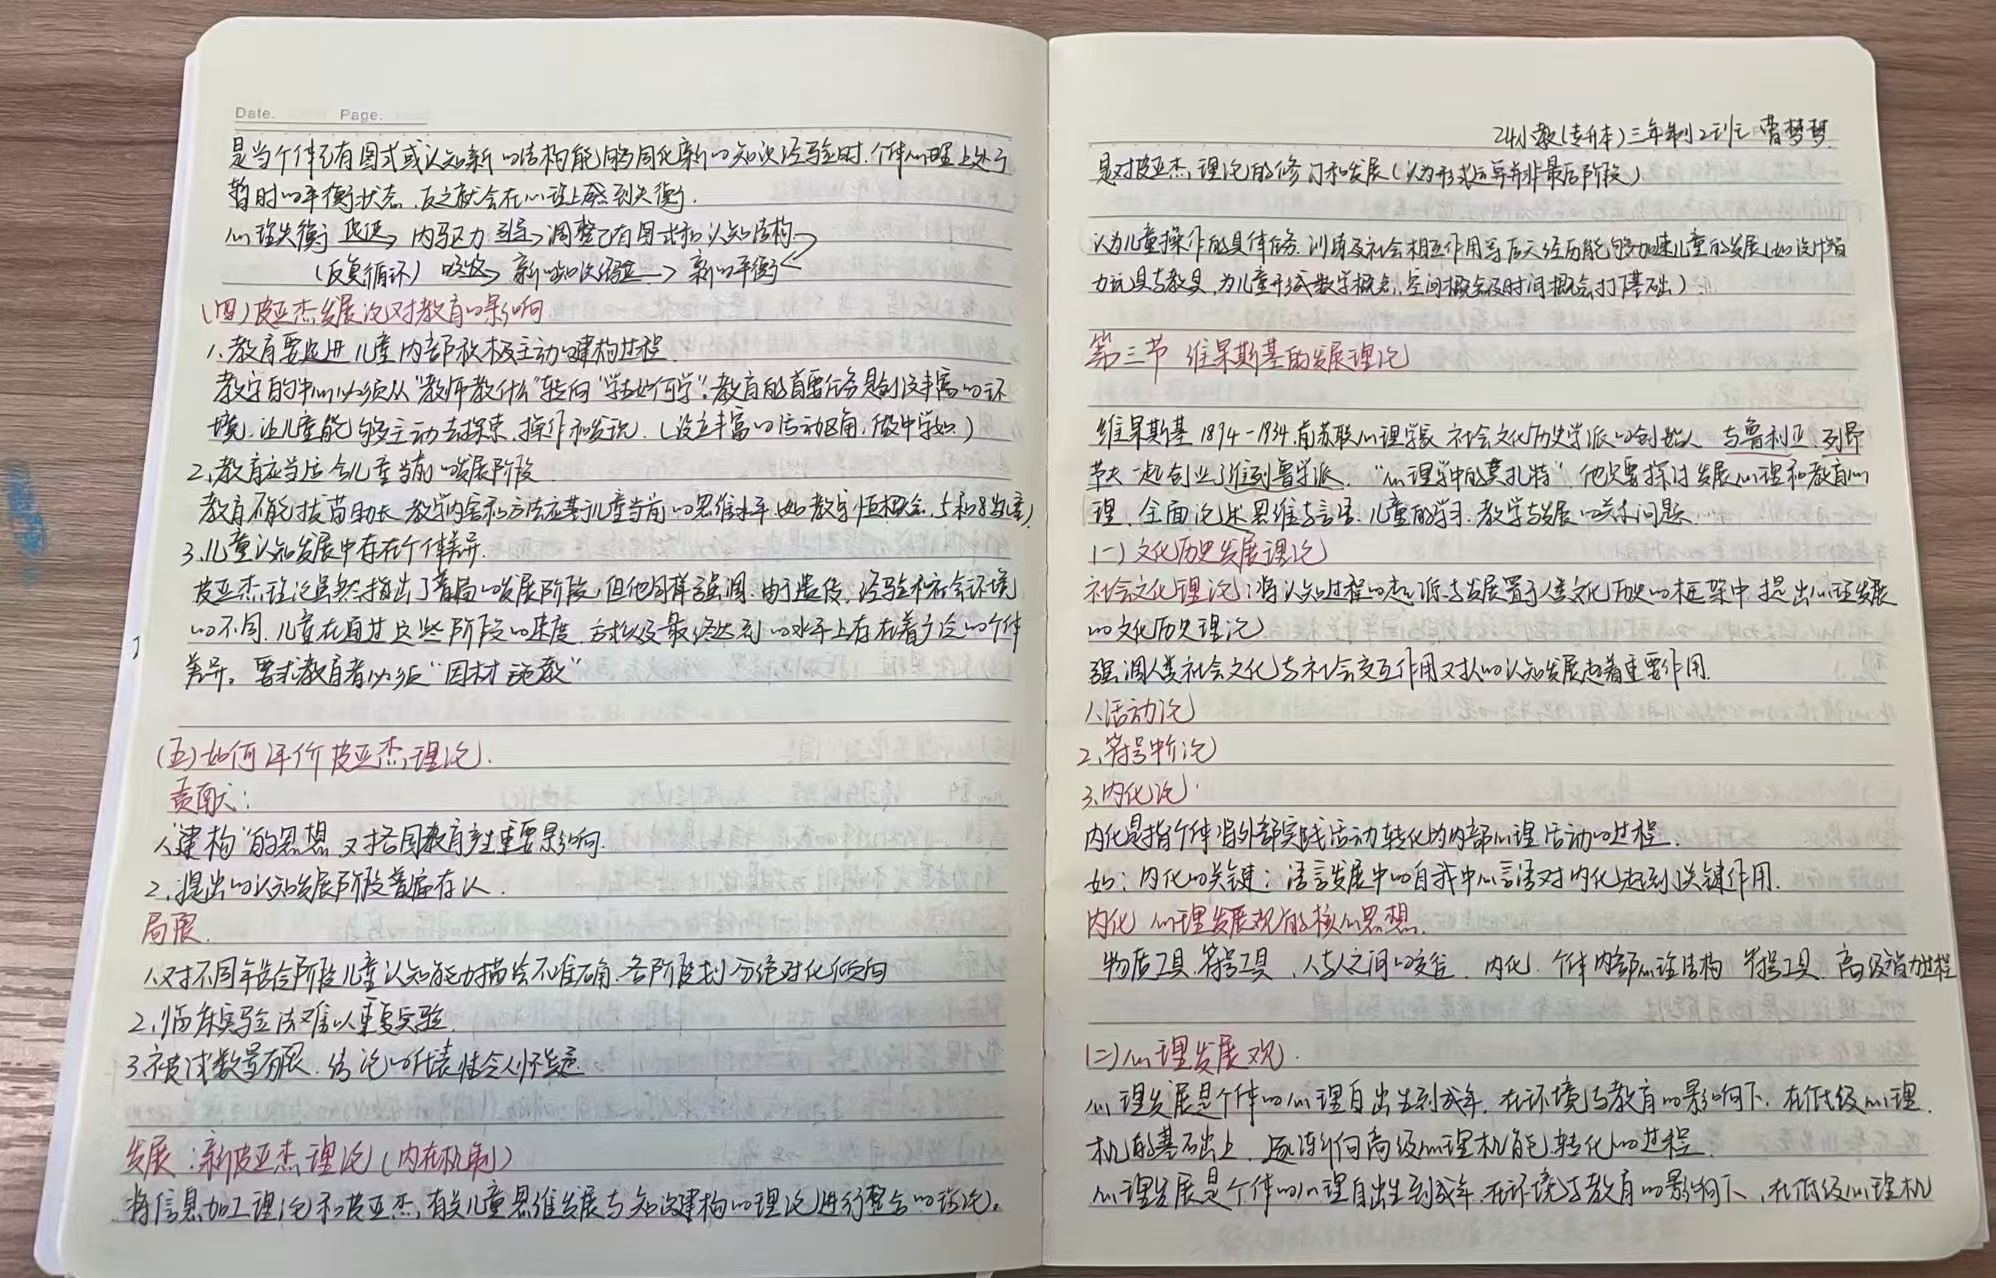 Date. Page.
是当个体已有图式或认知新的结构能够同化新的知识经验时,个体心理上处于
暂时的平衡状态,反之就会在心理上感到失衡.
心理失衡 促使→ 内驱力 引导→ 调整已有图式和认知结构
(反复循环) 吸收→ 新的知识经验→ 新的平衡
(四)皮亚杰发展论对教育的影响.
1.教育要促进儿童内部积极主动的建构过程.
教学的中心必须从"教师教什么"转向"学生如何学".教育的首要任务是创设丰富的环
境,让儿童能够主动去探索,操作和发现.(设立丰富的活动区角,做中学如.)
2.教育应当适合儿童当前的发展阶段
教育不能拔苗助长,教学内容和方法应基于儿童当前的思维水平.(如数字恒概念,5和8
3.儿童认知发展中存在个体差异.
皮亚杰理论虽然指出了普遍的发展阶段,但他同样强调,由于遗传,经验和社会环境
的不同,儿童在通过这些阶段的速度,方式以及最终达到的水平上存在着广泛的个体
差异。要求教育者必须"因材施教"
(五)如何评价皮亚杰理论.
贡献:
1."建构"的思想 对各国教育产生重要影响.
2.提出的认知发展阶段普遍存认.
局限.
1.对不同年龄阶段儿童认知能力描绘不准确,各阶段划分绝对化倾向
2.临床实验法难以重复实验.
3.被试数量有限.结论的代表性令人怀疑
发展:新皮亚杰理论(内在机制)
将信息加工理论和皮亚杰,有关儿童思维发展与知识建构的理论进行整合的理论。
24小教(专升本)三年制2班 曹梦琴
是对皮亚杰理论的修订和发展(认为形式运算并非最后阶段)
认为儿童操作的具体任务.训练及社会相互作用等后天经历能够加速儿童的发展(如设计智
力玩具与教具,为儿童形成数学概念,空间概念及时间概念打下基础)
第三节 维果斯基的发展理论
维果斯基 1894-1934,前苏联心理学家 社会文化历史学派的创始人 与鲁利亚、列昂
节夫一起创业了维列鲁学派."心理学中的莫扎特"他主要探讨发展心理和教育心
理,全面论述思维与言语,儿童的学习,教学与发展的关系问题.
(一)文化历史发展理论
社会文化理论:将认知过程的起源与发展置于人类文化历史的框架中,提出心理发展
的文化历史理论
强调人类社会文化与社会交互作用对人的认知发展起着重要作用.
1.活动论
2.符号中介论
3.内化论.
内化是指个体将外部实践活动转化为内部心理活动的过程.
如:内化的关键:语言发展中的自我中心言语对内化起到关键作用.
内化 心理发展观的核心思想.
物质工具、符号工具,人与人之间的交往,内化,个体内部心理结构 符号工具,高级智力过程
(二)心理发展观.
心理发展是个体的心理自出生到成年,在环境与教育的影响下,在低级心理
机的基础上,逐渐向高级心理机能转化的过程.
心理发展是个体的心理自出生到成年,在环境与教育的影响下,在低级心理机